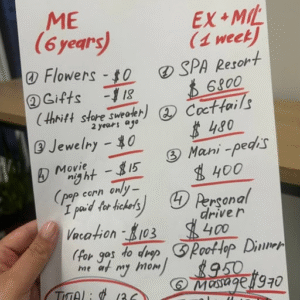 ME
(6 years)
① Flowers - $0
② Gifts - $18
(thrift store sweater)
2 years ago
③ Jewelry - $0
④ Movie night - $15
(pop corn only -
I paid for tickets)
Vacation - $103
(for gas to drop
me at my mom)
TOTAL: $ 136
EX + MIL
(1 week)
① SPA Resort
$ 6800
② Coctails
$ 480
③ Mani-pedis
$ 400
④ Personal
driver
$ 400
⑤ Rooftop Dinner
$950
⑥ Massage $970